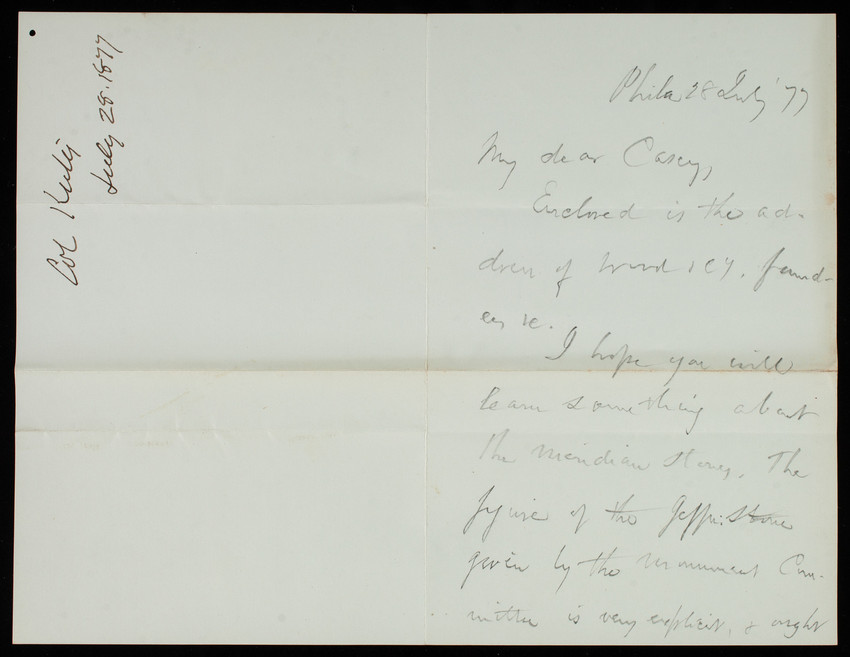 Col Kurtz
July 28. 1877
Phila 28 July '77
My dear Casey,
Enclosed is the ad-
dress of Wood & Cy. found-
ers &c.
I hope you will
learn something about
the Meridian Stones. The
figure of the Jeffn: Stone
given by the Monument Com-
mittee is very explicit, & ought